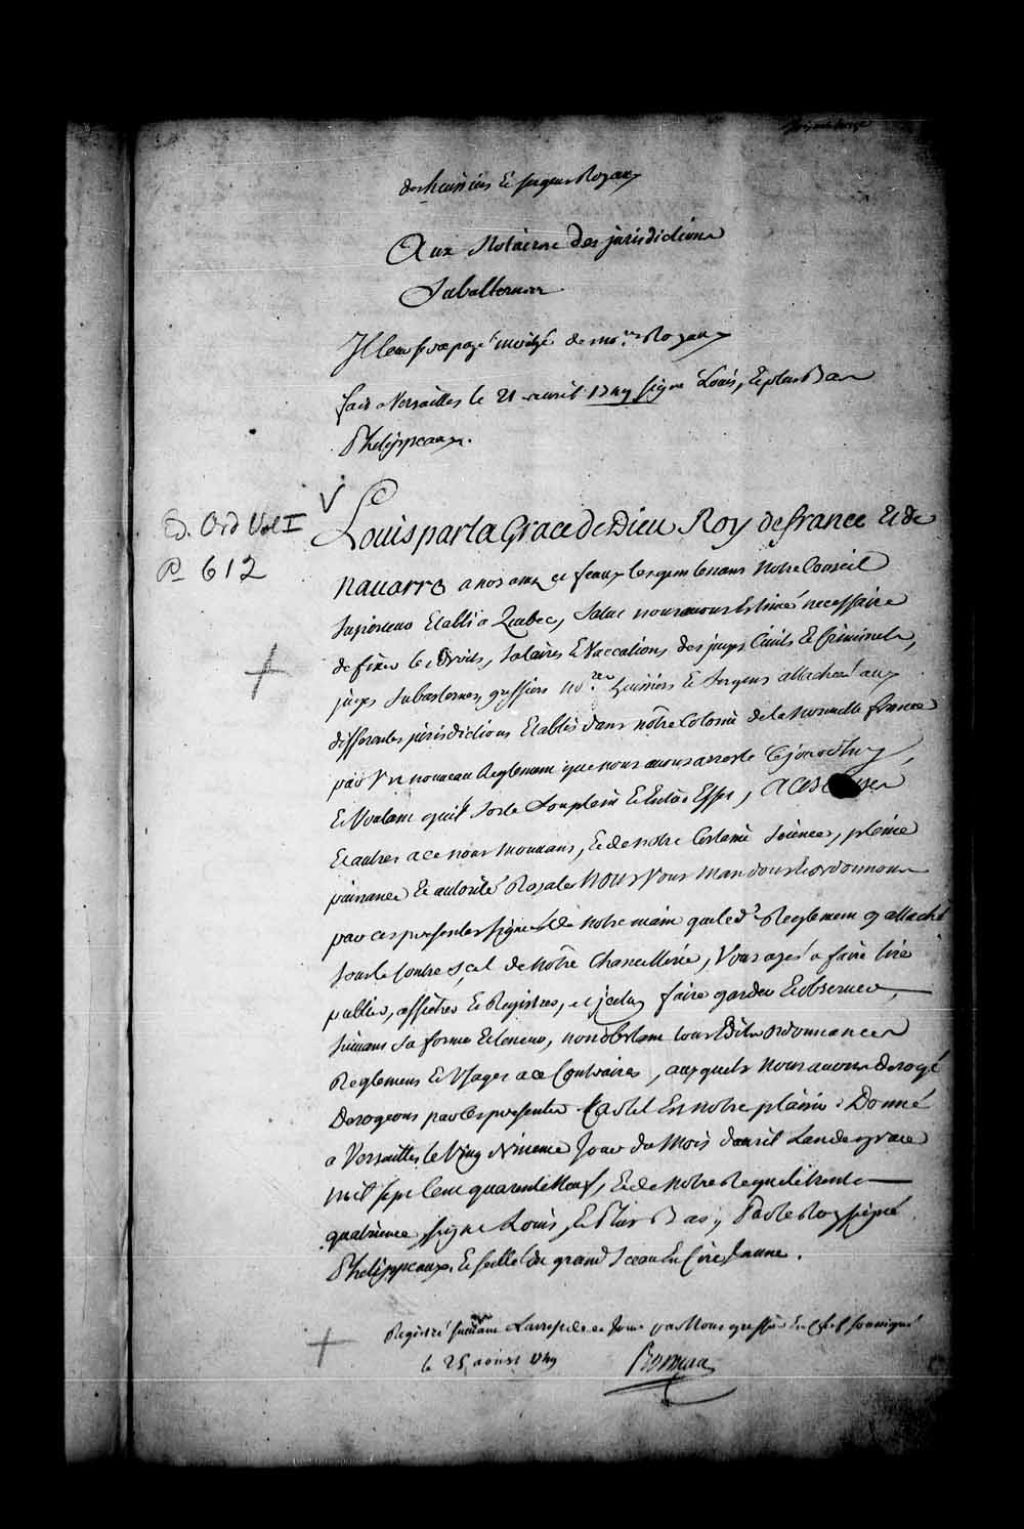 des huissiers & sergens Royaux
Aux Notaires des jurisdictions
Subalternes
Il leur sera payé moitié de no.res Royaux
fait a Versailles le 21 auril 1749 signé Louis, & plus Bas
Phelippeaux.
Ed. Ord Vol I
P 612
V
Louis par la Grace de Dieu Roy de france & de
Nauarre a nos amez et feaux les gens tenans Notre Conseil
superieur Etabli a Quebec, Salut nous auons Estimé necessaire
de fixer les Droits, Salaires & Vaccations des juges Ciuils & Criminels,
juges Subalternes, greffiers no.res huissiers & Sergens attachés aux
differentes jurisdictions Etablies dans nôtre Colonie de la Nouuelle france
par Vn nouueau Reglement que nous auons arresté Cejourdhuy,
Et Voulant qu'il sorte Son plein & Entier Effet, A CES CAUSES
Et autres a ce nous mouuans, & de notre Certaine Science, pleine
puissance & autorité Royale NOUS Vous mandons & ordonnons
par ces presentes signées de notre main que led.t Reglement cy attaché
sous le Contre scel de Nôtre Chancellerie, Vous ayés a faire lire
publier, afficher & Registrer, et iceluy faire garder & obseruer,
suiuant sa forme & teneur, nonobstant tous Edits ordonnances
Reglemens & Usages a ce Contraires, auxquels Nous auons Derogé
Derogeons par ces presentes Car tel Est notre plaisir. Donné
a Versailles le Vingt Vnieme Jour du Mois dauril Lan de grace
mil sept Cent quarente Neuf, & de Notre Regne le trente
quatrieme, signé Louis, & Plus Bas, Par le Roy signé
Phelippeaux. & scellé du grand Sceau En Cire Jaune.
Registré suiuant Larrest de ce Jour par Nous greffier En Chef soussigné
le 25 aoust 1749